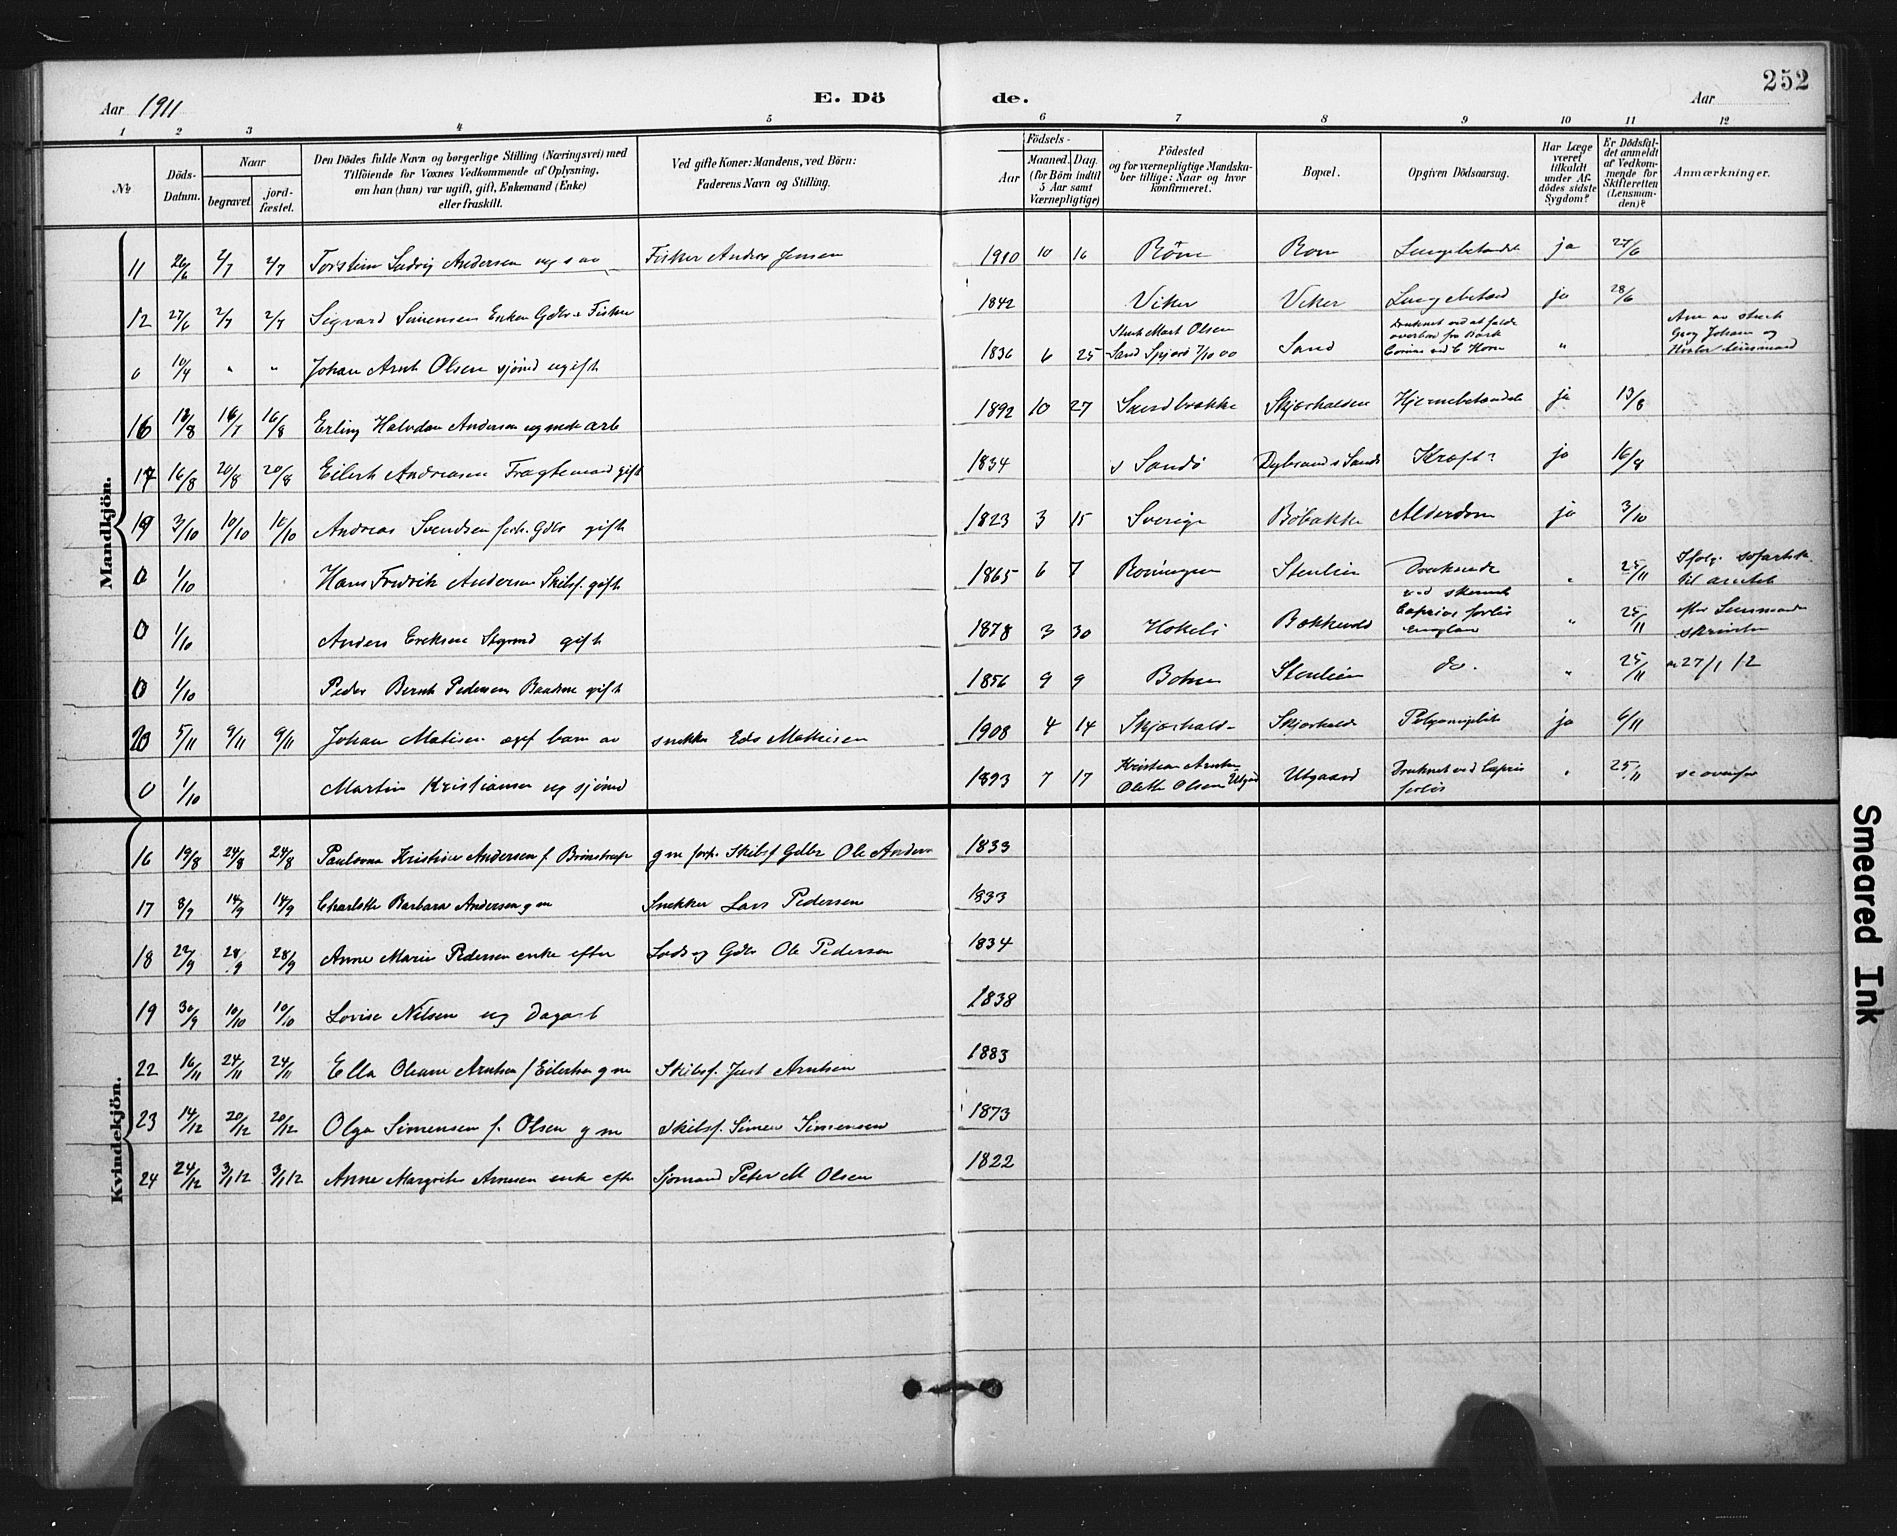 252
Aar 1911
E. Dö de.
Aar
1 2 3 4 5 6 7 8 9 10 11 12
№
Döds-Datum.
Naar
begravet
jord-fæstet.
Den Dödes fulde Navn og borgerlige Stilling (Næringsvei) med
Tilföiende for Voxnes Vedkommende af Oplysning,
om han (hun) var ugift, gift, Enkemand (Enke)
eller fraskilt.
Ved gifte Koner: Mandens, ved Börn:
Faderens Navn og Stilling.
Födsels-
Aar
Maaned. Dag.
(for Börn indtil
5 Aar samt
Værnepligtige)
Födested
og for værnepligtige Mandska-
ber tillige: Naar og hvor
konfirmeret.
Bopæl.
Opgiven Dödsaarsag.
Har Læge
været
tilkaldt
under Af-
dödes sidste
Sygdom?
Er Dödsfal-
det anmeldt
af Vedkom-
mende for
Skifteretten
(Lensman-
den)?
Anmærkninger.
Mandkjön.
11 26/6 2/7 2/7 Torstein Ludvig Andersen Fisker Andres Jensen 1910 10 16 Röm Rom Lungebetændelse ja 27/6
12 27/6 2/7 2/7 Sigvard Simensen Enkem Gdbr Fisker 1842 Viker Viker Lungebetænd ja 28/6
0 10/4 " " Johan Arnt Olsen sjömd ugift 1836 6 25 Mart Olsen Sand Spjærö 7/10 00 Sand Druknet ved at falde overbor fra Bark ved C Horn "
16 13/8 16/7 16/8 Erling Halvdan Andersen arb 1892 10 27 Sandbrække Skjærhalden Hjernebetændels ja 13/8
17 16/8 20/8 20/8 Eilert Andreasen Fragtemand gift 1834 s Sandö Kræft ja 16/8
19 3/10 10/10 10/10 Andreas Svendsen forh. Gdbr gift 1823 3 15 Sverige Böbakke Alderdom ja 3/10
0 1/10 Hans Fredrik Andersen Skibsf. gift 1865 6 7 Stenlien Druknede " 25/11
ved
0 1/10 Anders Ereksen Styrmd gift 1878 3 30 Bakkevold Caprics forlis " 25/11 efter Lensmands
0 1/10 Peder Bernt Pedersen Baadsm gift 1856 9 9 Stenlien do. " 25/11 27/1 12
20 5/11 9/11 9/11 Johan Matisen barn av snekker Eds Mathisen 1908 4 14 Skjærhald- Skjærhald ja 6/11
0 1/10 Martin Kristiansen ug sjömd 1893 7 17 Kristian Olsen Utgaard Utgaard Druknet ved Capris forlis " 25/11 se ovenfor
Kvindekjön.
16 19/8 24/8 24/8 Paulovna Kristine Andersen f. Brönstrup g m forh. Skibsf Gdbr Ole Anders 1833
17 8/9 14/9 14/9 Charlotte Barbara Andersen g m Snekker Lars Pedersen 1833
18 22/9 28/9 28/9 Anne Marie Pedersen enke efter Lods og Gdbr Ole Pedersen 1834
19 30/9 10/10 10/10 Lovise Nilsen ug Dagarb 1838
22 16/11 24/11 24/11 Ella Oleane Arntsen f Eilertsen g m Skibsf. Just Arntsen 1883
23 14/12 20/12 20/12 Olga Simensen f. Olsen g m skibsf. Simen Simensen 1873
24 24/12 3/1 12 3/1 12 Anne Margrete Arnesen enke efter Sjömand Peter M Olsen 1822
Smeared Ink